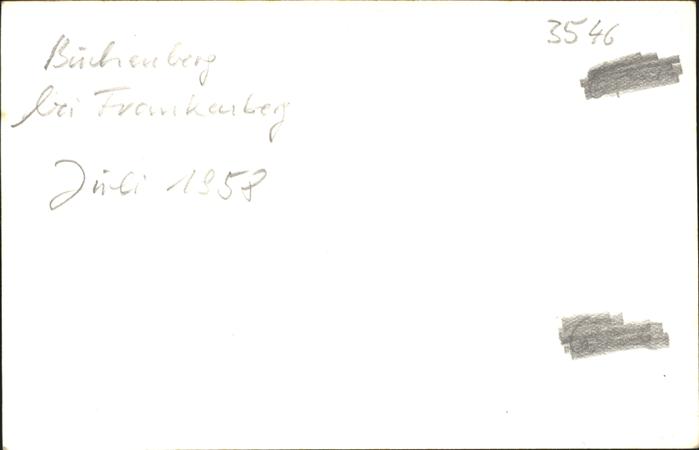 3546
Buchenberg
bei Frankenberg
Juli 1958